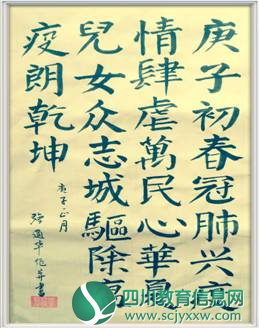 庚子初春冠肺兴疫
情肆虐萬民心華夏
兒女众志城驅除
疫朗乾坤
庚子正月
华作并書
四川教育信息网
www.scjyxxw.com